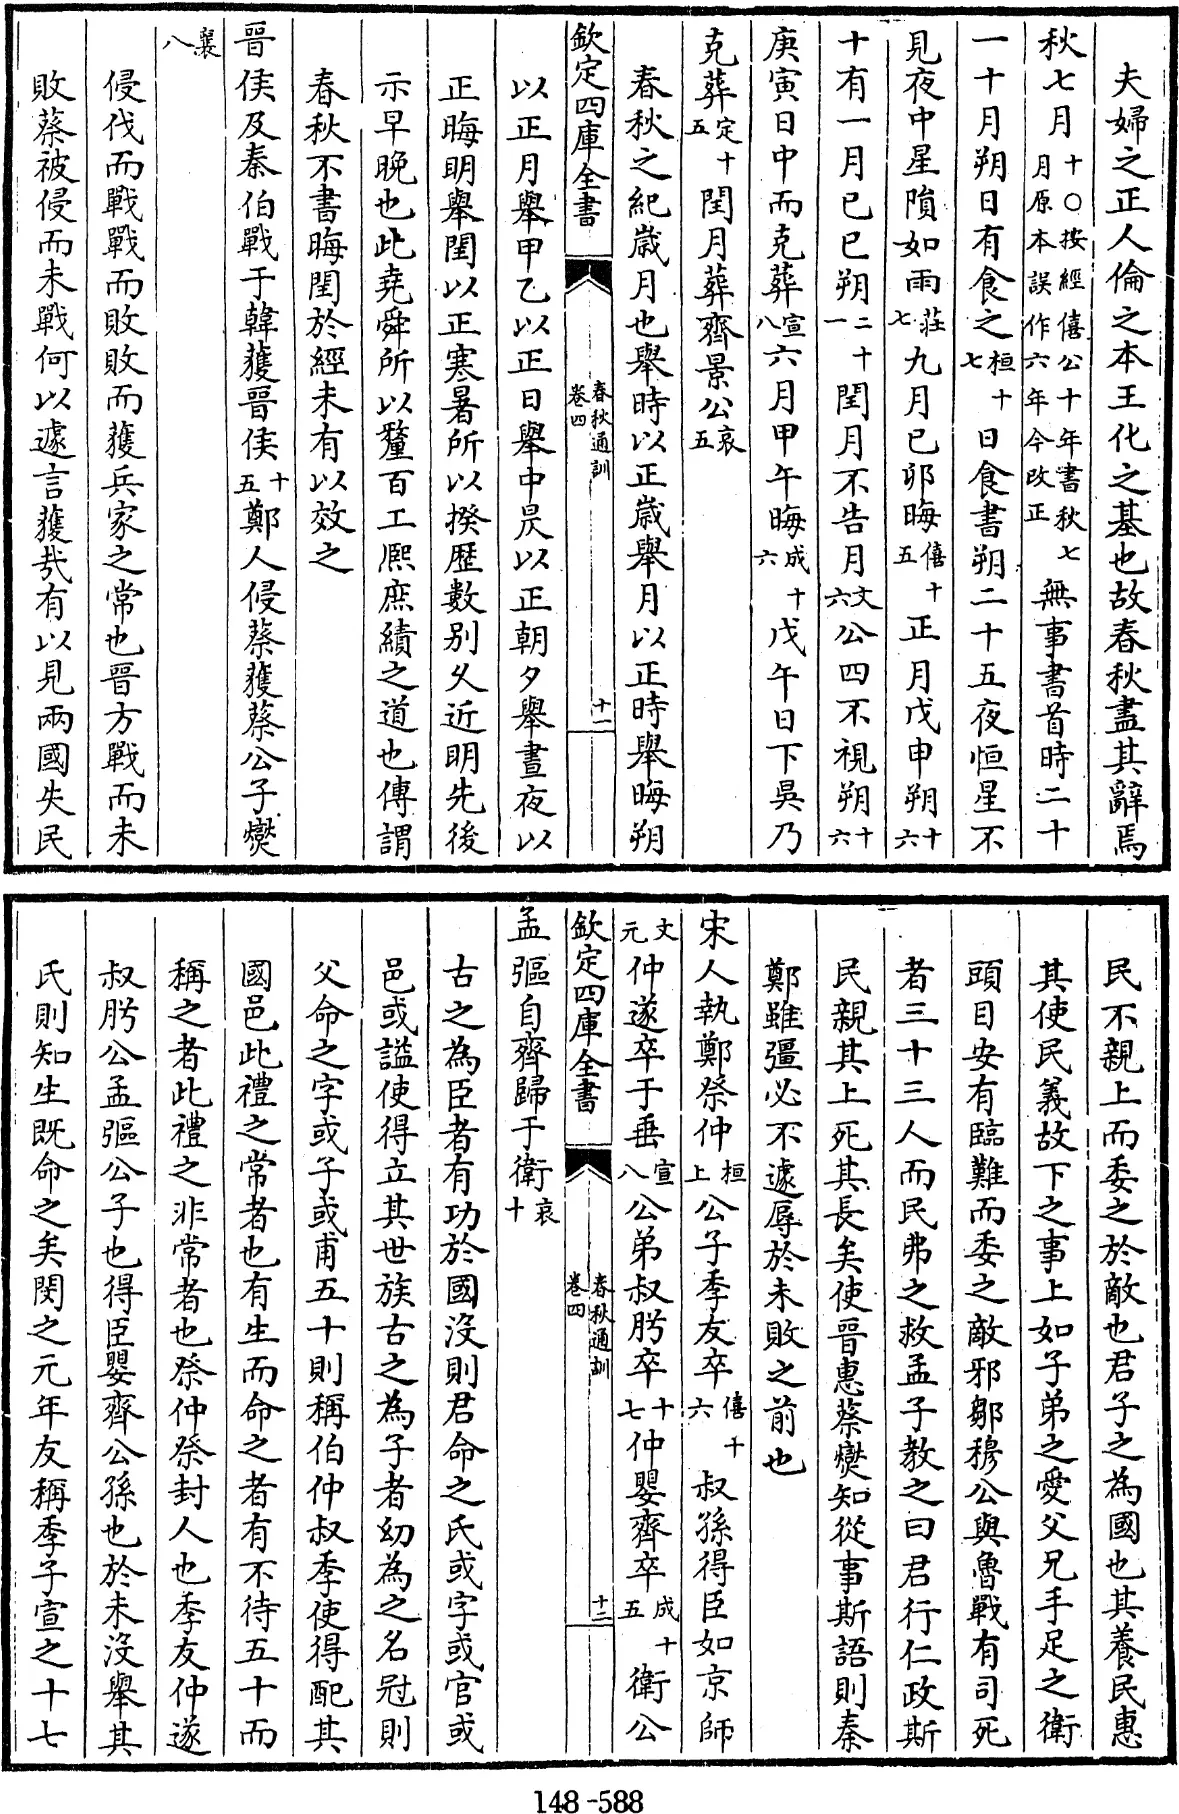 夫婦之正人倫之本王化之基也故春秋盡其辭焉
秋七月十○按經僖公十年書秋七月原本誤作六年今改正無事書首時二十
一十月朔日有食之桓十七日食書朔二十五夜恒星不
見夜中星隕如雨莊七九月已卯晦僖十五正月戊申朔十六
十有一月已巳朔二十一閏月不告月文六公四不視朔十六
庚寅日中而克葬宣八六月甲午晦成十六戊午日下吳乃
克葬定十五閏月葬齊景公哀五
春秋之紀歲月也舉時以正歲舉月以正時舉晦朔
欽定四庫全書 春秋通訓 卷四 十一
以正月舉甲乙以正日舉中昃以正朝夕舉晝夜以
正晦明舉閏以正寒暑所以揆歷數别久近明先後
示早晚也此堯舜所以釐百工熙庶績之道也傳謂
春秋不書晦閏於經未有以效之
晉侯及秦伯戰于韓獲晉侯十五鄭人侵蔡獲蔡公子燮
襄八
侵伐而戰戰而敗敗而獲兵家之常也晉方戰而未
敗蔡被侵而未戰何以遽言獲哉有以見兩國失民
民不親上而委之於敵也君子之為國也其養民惠
其使民義故下之事上如子弟之愛父兄手足之衛
頭目安有臨難而委之敵邪鄒穆公與魯戰有司死
者三十三人而民弗之救孟子教之曰君行仁政斯
民親其上死其長矣使晉惠蔡燮知從事斯語則秦
鄭雖彊必不遽辱於未敗之前也
宋人執鄭祭仲桓上公子季友卒僖十六叔孫得臣如京師
文元仲遂卒于垂宣八公弟叔肸卒十七仲嬰齊卒成十五衛公
欽定四庫全書 春秋通訓 卷四 十二
孟彄自齊歸于衛哀十
古之為臣者有功於國沒則君命之氏或字或官或
邑或謚使得立其世族古之為子者幼為之名冠則
父命之字或子或甫五十則稱伯仲叔季使得配其
國邑此禮之常者也有生而命之者有不待五十而
稱之者此禮之非常者也祭仲祭封人也季友仲遂
叔肸公孟彄公子也得臣嬰齊公孫也於未沒舉其
氏則知生既命之矣閔之元年友稱季子宣之十七
148-588